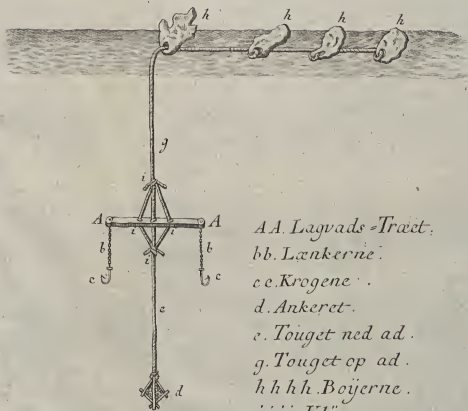 h h h h
g
i
A i i A
b i b
c c
e
d
AA. Lagvads=Træet.
bb. Lænkerne.
cc. Krogene.
d. Ankeret.
e. Touget ned ad.
g. Touget op ad.
hhhh. Boijerne.